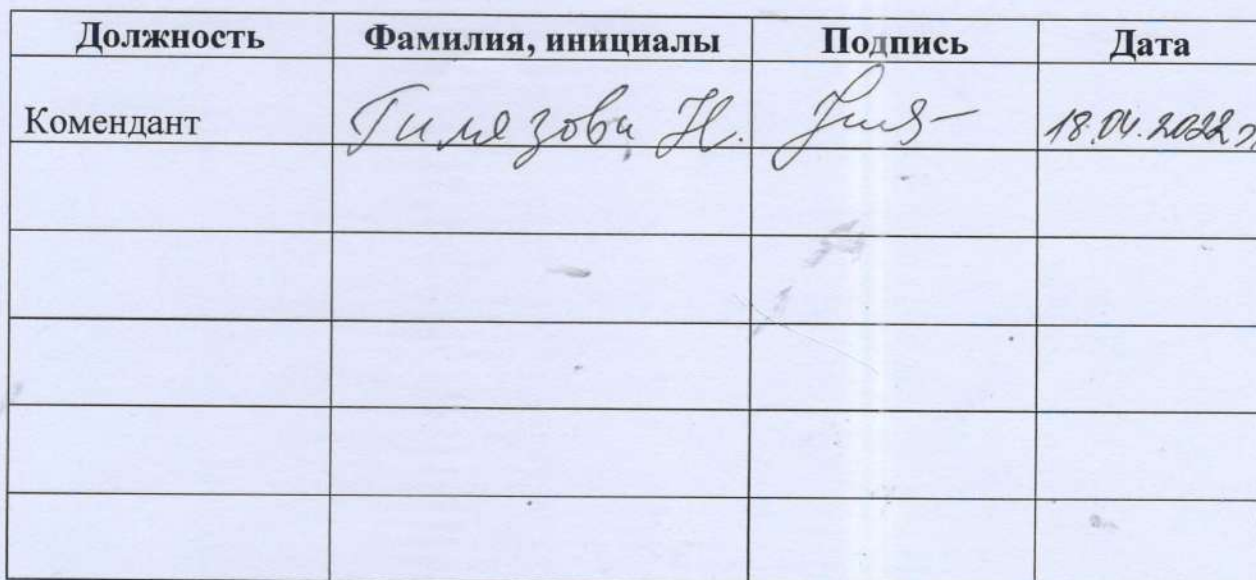 Должность Фамилия, инициалы Подпись Дата
Комендант Гилязова Н. 18.04.2022 г.